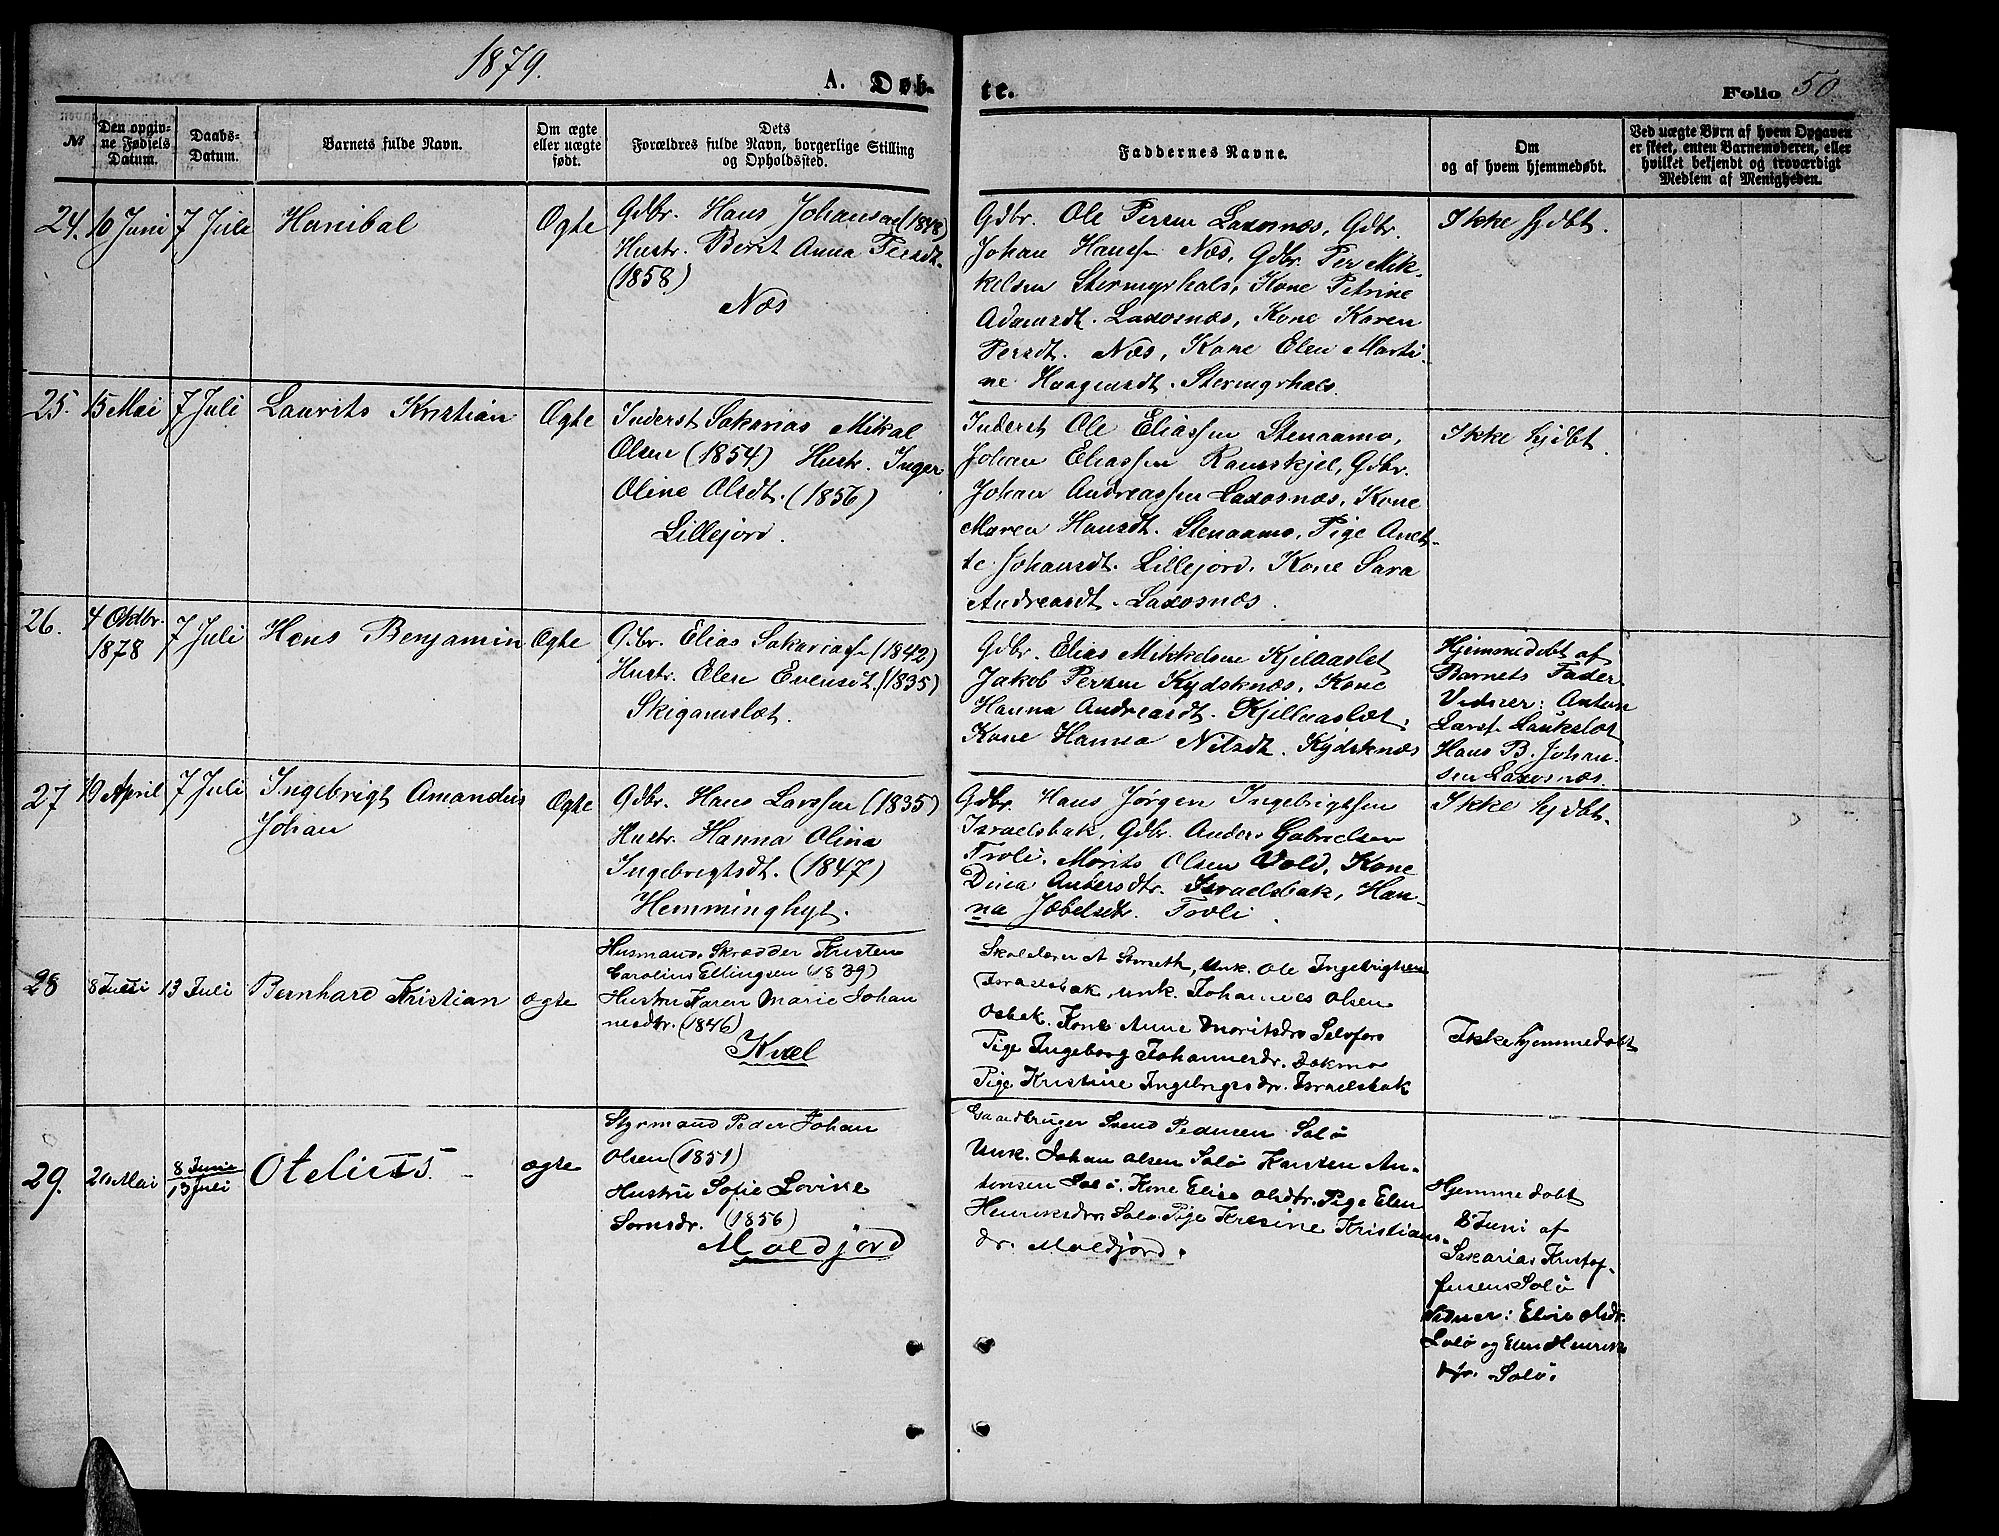 1879.
A. Døb-
te.
Folio 50.
№
Den opgiv-
ne Fødsels
Datum.
Daabs-
Datum.
Barnets fulde Navn.
Om ægte
eller uægte
født.
Dets
Forældres fulde Navn, borgerlige Stilling
og Opholdssted.
Faddernes Navne.
Om
og af hvem hjemmedøbt.
Ved uægte Børn af hvem Opgaven
er skeet, enten Barnemoderen, eller
hvilket bekjendt og troværdigt
Medlem af Menigheden.
24. 10 Juni 7 Juli Hanibal Ægte
Gdbr. Hans Johansen (1848)
Hustr. Berit Anna Persdt.
(1858)
Næs
Gdbr. Ole Persen Laxosnæs, Gdbr.
Johan Hanss. Næs, Gdbr. Per Mik-
kelsen Stormyrhals, Kone Petrine
Adamsdt. Laxosnæs, Kone Karen
Persdt. Næs, Kone Elen Marti-
ne Haagensdt. Stormyrhals.
Ikke hjdbt.
25. 15 Mai 7 Juli Laurits Kristian Ægte
Inderst Sakarias Mikal
Olsen (1854) Hustr. Inger
Oline Olsdt. (1856)
Lillejord.
Inderst Ole Eliassen Stenaamo,
Johan Eliassen Ramskjel, Gdbr.
Johan Andreassen Laxosnæs, Kone
Maren Hansdt. Stenaamo, Pige Anet-
te Johansdt. Lillejord, Kone Sara
Andreasdt. Laxosnæs.
Ikke hjdbt.
26. 4 Oktbr. 1878 7 Juli Hans Benjamin Ægte
Gdbr. Elias Sakarias. (1842)
Hustr. Elen Evensdt. (1835)
Skigamslæt.
Gdbr. Elias Mikkelsen Kjilaaslet
Jakob Persen Kydsknæs, Kone
Hanna Andreasdt. Kjillaaslæt,
Kone Hanna Nilsdt. Kydsknæs
Hjemmedøbt af
Barnets Fader.
Vidner: Anton
Larss. Laukslæt
Hans B. Johan-
sen Laxosnæs.
27 19 April 7 Juli Ingebrigt Amandus
Johan Ægte
Gdbr. Hans Larssen (1835)
Hustr. Hanna Olina
Ingebrigtsdt. (1847)
Hemminghyt.
Gdbr. Hans Jørgen Ingebrigtsen
Israelsbak, Gdbr. Anders Gabrielsen
Troli, Morits Olsen Vold, Kone
Dina Andersdtr. Israelsbak, Han-
na Jæbelsdtr. Troli.
Ikke hjdbt.
28 8 Juni 13 Juli Bernhard Kristian ægte
Husmand, Skrædder Kristen
Carolius Ellingsen (1839)
Hustru Karen Marie Johan
nesdtr. (1846)
Kvæl
Skolelærer A Storseth, Unk. Ole Ingebrigtsen
Israelsbak, Unk. Johannes Olsen
Osbak. Kone Anne Moritsdr Selsfors
Pige Ingeborg Johannesdr. Dokmo
Pige Kristine Ingebrigtsdr. Israelsbak
Ikke hjemmedøbt
29. 20 Mai 8 Juni
13 Juli Otelius ægte
Styrmand Peder Johan
Olsen (1851)
Hustru Sofie Lovise
Sørnsdr. (1856)
Moldjord
Gaardbruger Svend Pedersen Solø
Unk. Johan Olsen Solø Karsten An-
tonsen Solø. Kone Elise Olsdtr. Pige Elen
Henriksdr. Solø. Pige Kresine Kristians-
dr. Moldjord.
Hjemmedøbt
8 Juni af
Sakarias Kristof-
fersen Solø
Vidner: Elise Olsdr.
Solø og Elen Henriks
dr. Solø.